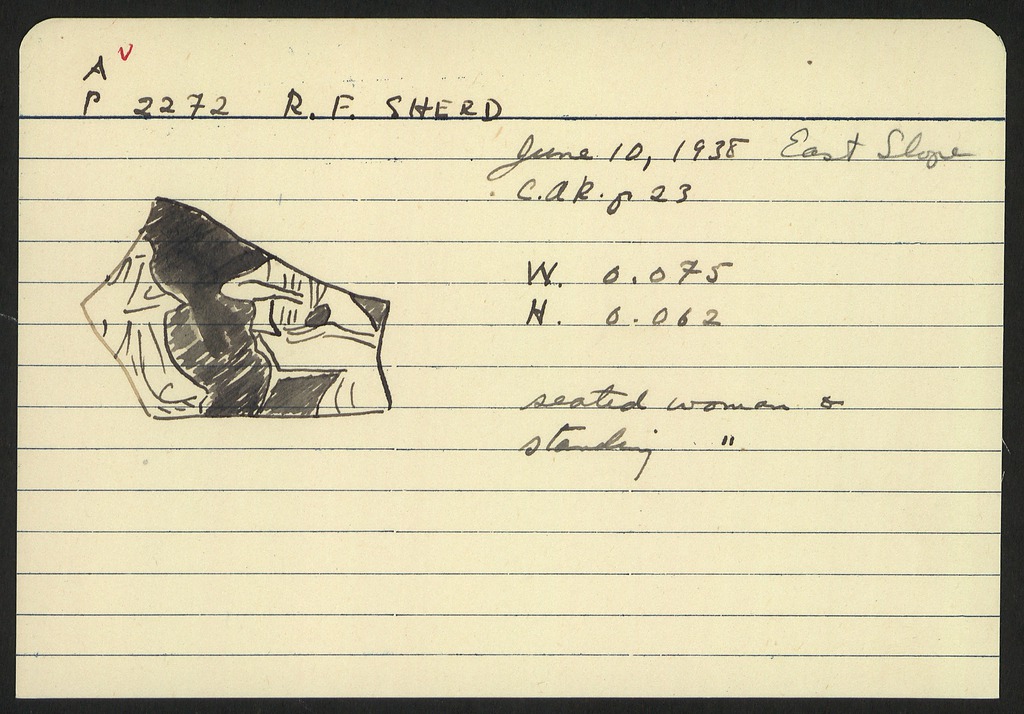 A V
P 2272 R.F. SHERD
June 10, 1938 East Slope
C.A.R. p 23
W. 0.075
H. 0.062
seated woman &
standing "